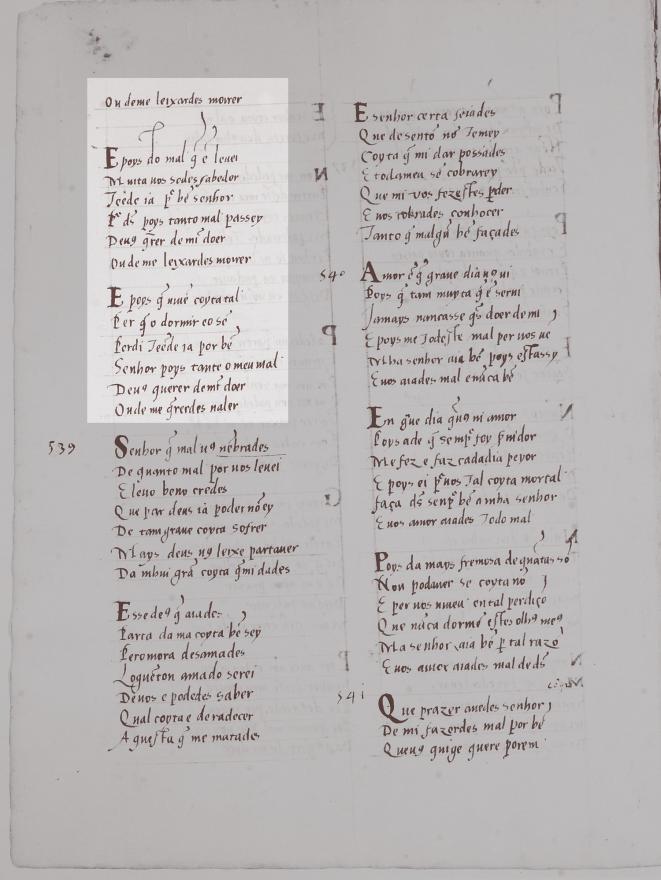 Ou deme leixardes moirer
E poys do mal q̄ ē leuei
Muita uos sodes sabedor
Teēde ia pr̄ bē senhor
Pr̄ ds̄ poys tanto mal passey
Deus q̄rer demī doer
Ou de me leyxardes moirer
E poys q̄ uiuē coyta tal
Per q̄ o dormir eo sē
Perdi Teēde ia por bē
Senhor poys tanto o meu mal
Deus querer demī doer
Ou de me q̄rerdes ualer
539
Senhor q̄ mal u9 nēbrades
De quanto mal por uos leuei
E leuo beno credes
Que par deus ia poder nō ey
De tam graue coyta sofrer
Mays deus u9 leixe partauer
Da mhui grā coyta q̄mi dades
E sse de9 q̄ aiades
Parta da ma coyta bē sey
Pero mora desamades
Logueton amado serei
De uos e podedes saber
Qual coyta e de radecer
A questa q̄ me matades
E senhor certa seiades
Que desentō nō Temey
Coyta q̄ mi dar possades
E todameu sē cobrarey
Que mi uos fezestes pder
E uos cobrades conhocer
Tanto q̄ malgū bē façades
540
Amor ē q̄ graue dia u9 ui
Poys q̄ tam muyta q̄ ē serui
Jamays nuncasse q̄s doer de mi
E poys me Todeste mal per uos ue
Mha senhor aia bē poys estassy
E uos aiades mal enūca bē
En g̃ue dia q̄u9 ui amor
Poys ade q̄ semp̃ foy ſuidor
Me fez e faz cadadia peyor
E poys ei pr̄uos Tal coyta mortal
faça ds̄ senp̃ bē amha senhor
E uos amor aiades Todo mal
Poys da mays fremosa de quātas sō
Non podauer se coyta nō
E per uos uiueu en tal perdiçō
Que nūca dormē estes olhos me9
Ma senhor aia bē p tal razō
E uos amor aiades mal de ds̄
541
Que prazer auedes senhor
De mi fazerdes mal por bē
Queu9 quige quero porem